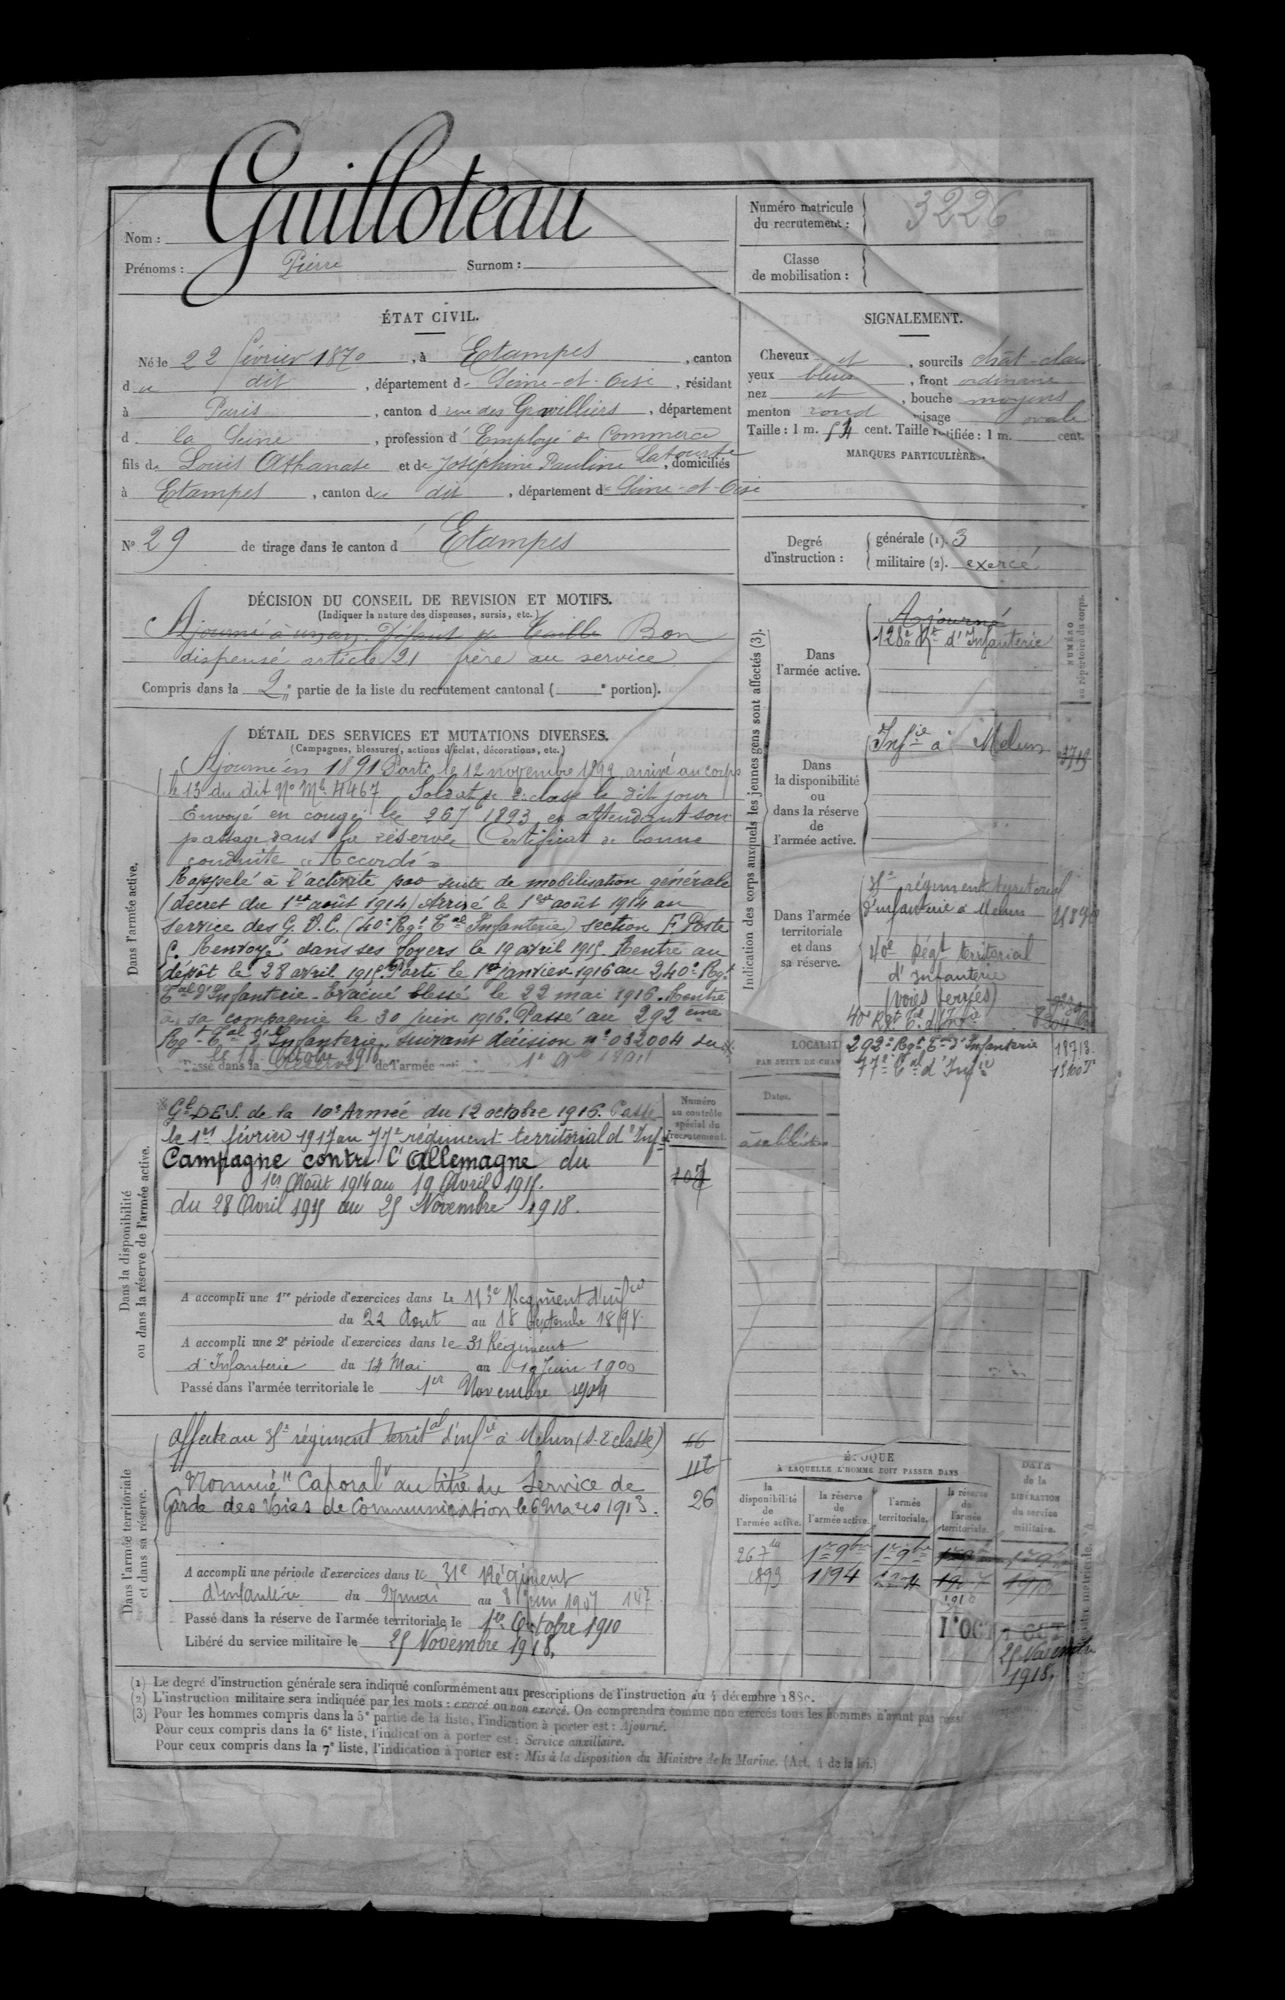 Guilloteau
Nom :
Prénoms : Pierre Surnom :
Numéro matricule
du recrutement : 3226
Classe
de mobilisation :
ÉTAT CIVIL.
Né le 22 février 1870, à Etampes, canton
du dit, département de Seine-et-Oise, résidant
à Paris, canton d rue des Gravilliers, département
d la Seine, profession d' Employé de Commerce
fils de Louis Athanase et de Joséphine Pauline, domiciliés
à Etampes, canton du dit, département de Seine-et-Oise
N° 29 de tirage dans le canton d' Etampes
SIGNALEMENT.
Cheveux et, sourcils chât-clair
yeux bleus, front ordinaire
nez et, bouche moyens
menton rond visage ovale
Taille : 1 m. 54 cent. Taille rectifiée : 1 m. cent.
MARQUES PARTICULIÈRES.
Degré
d'instruction :
générale (1). 3
militaire (2). exercé
DÉCISION DU CONSEIL DE REVISION ET MOTIFS.
(Indiquer la nature des dispenses, sursis, etc.)
Ajourné à un an. Défaut de Taille Bon
dispensé article 21 frère au service
Compris dans la 2e partie de la liste du recrutement cantonal ( e portion).
DÉTAIL DES SERVICES ET MUTATIONS DIVERSES.
(Campagnes, blessures, actions d'éclat, décorations, etc.)
Dans l'armée active.
Ajourné en 1891 Parti le 12 novembre 1892 arrivé au corps
le 13 du dit N° Mle 4467 Soldat de 2e classe le dit jour
Envoyé en congé le 26 7 1893 en attendant son
passage dans la réserve Certificat de bonne
conduite « Accordé »
Rappelé à l'activité par suite de mobilisation générale
(décret du 1er août 1914) Arrivé le 1er août 1914 au
service des G.V.C. (40e Rgt Tal Infanterie) section F. Poste
C. Renvoyé dans ses foyers le 19 avril 1915. Rentré au
dépôt le 28 avril 1915. Parti le 1er janvier 1916 au 240e Rgt
Tal d'Infanterie. Evacué blessé le 22 mai 1916. Rentré
à sa compagnie le 30 juin 1916. Passé au 292ème
Rgt Tal d'Infanterie, suivant décision n° 032004 du
le 15 Octobre 1916
Passé dans la réserve de l'armée
Dans la disponibilité
ou dans la réserve de l'armée active.
Gl DES. de la 10e Armée du 12 octobre 1916. Passé
le 1er février 1917 au 77e régiment territorial d'Infie
Campagne contre l'Allemagne du
1er Août 1914 au 19 Avril 1915.
du 28 Avril 1915 au 25 Novembre 1918.
A accompli une 1re période d'exercices dans le 113e Régiment d'infie
du 22 Aout au 18 Septembre 1898.
A accompli une 2e période d'exercices dans le 31 Régiment
d'Infanterie du 14 Mai au 10 Juin 1900
Passé dans l'armée territoriale le 1er Novembre 1904
Numéro
au contrôle
spécial du
recrutement.
107
Dans l'armée territoriale
et dans sa réserve.
Affecté au régiment territal d'infie à Melun (s. 2e classe)
Nommé "Caporal" au titre du Service de
Garde des Voies de Communication le 6 Mars 1913.
66
26
A accompli une période d'exercices dans le 31e Régiment
d'Infanterie du 27 mai au 8 juin 1907 147
Passé dans la réserve de l'armée territoriale le 1er Octobre 1910
Libéré du service militaire le 25 Novembre 1918.
Indication des corps auxquels les jeunes gens sont affectés (3).
NUMÉRO
au répertoire du corps.
Dans
l'armée active.
Ajourné
128e Rt d'Infanterie
Dans
la disponibilité
ou
dans la réserve
de
l'armée active.
Infie à Melun
Dans l'armée
territoriale
et dans
sa réserve.
régiment territorial
d'infanterie à Melun
40e Régt territorial
d'Infanterie
(voies ferrées)
40e Rgt Tal d'Infie
292e Rgt Tal d'Infanterie 18713
77e Tal d'Infie
LOCALIT
PAR SUITE DE CHAN
Dates.
ÉPOQUE
À LAQUELLE L'HOMME DOIT PASSER DANS
la
disponibilité
de
l'armée active.
la réserve
de
l'armée active.
l'armée
territoriale.
la réserve
de
l'armée
territoriale.
DATE
de la
LIBÉRATION
du service
militaire.
26 7bre 1er 9bre 1er 9bre
1893 1894 1904 1907
1910
1 OCT
25 Novembre
1918.
(1) Le degré d'instruction générale sera indiqué conformément aux prescriptions de l'instruction du 4 décembre 1889.
(2) L'instruction militaire sera indiquée par les mots : exercé ou non exercé. On comprendra comme non exercés tous les hommes n'ayant pas
(3) Pour les hommes compris dans la 5e partie de la liste, l'indication à porter est : Ajourné.
Pour ceux compris dans la 6e liste, l'indication à porter est : Service auxiliaire.
Pour ceux compris dans la 7e liste, l'indication à porter est : Mis à la disposition du Ministre de la Marine. (Art. 4 de la loi.)